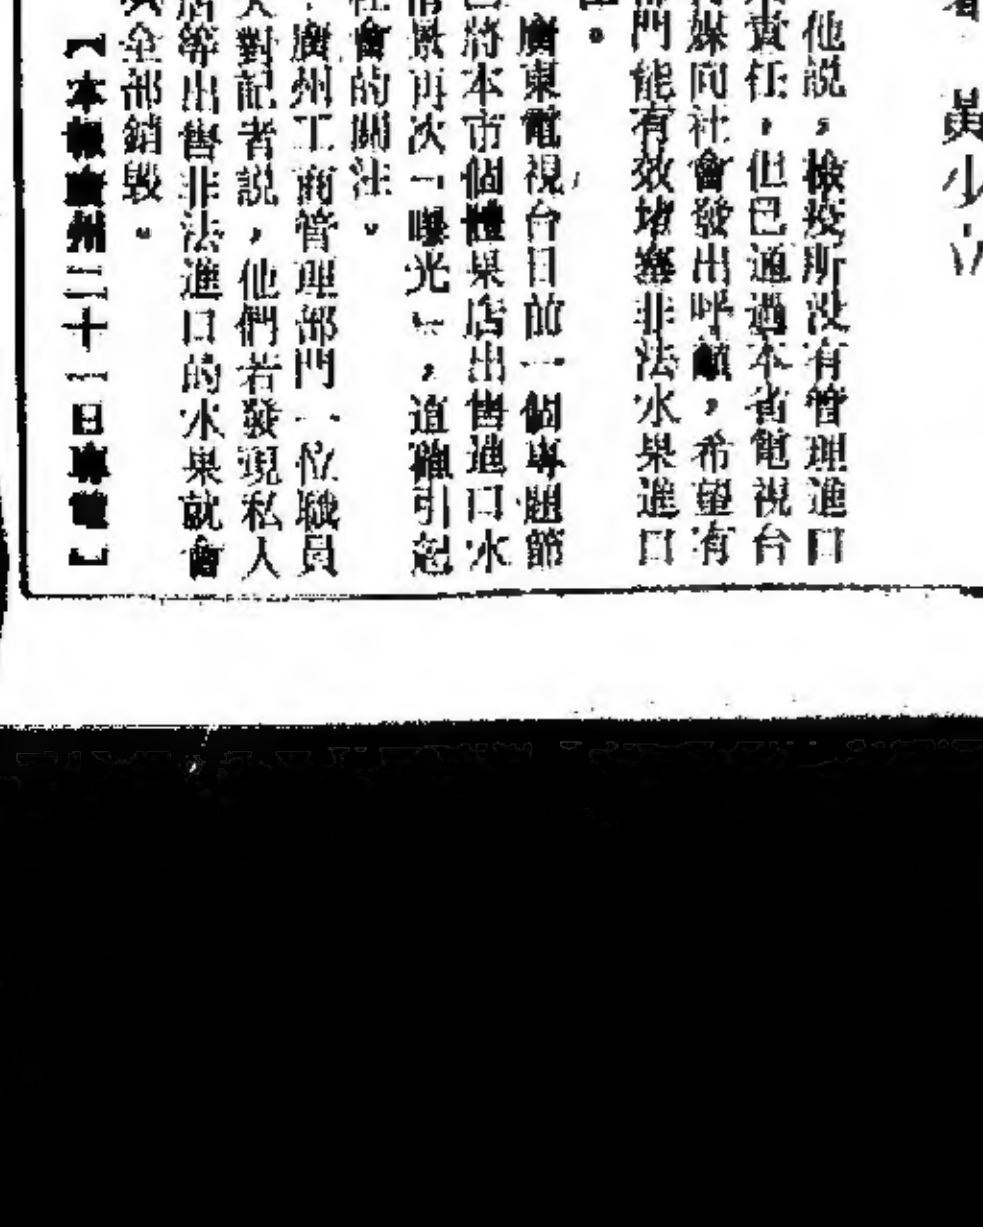 黃小立
他説，檢疫所没有管理進口
責任，但已通過本省電視台
媒向社會發出呼籲，希望有
門能有效堵塞非法水果進口
。
廣東電視台目前一個專題節
將本市個體果店出售進口水
景再次「曝光」，這確引起
會的關注。
廣州工商管理部門一位職員
對記者説，他們若發現私人
等出售非法進口的水果就會
全部銷毀。
【本報廣州二十一日專電】